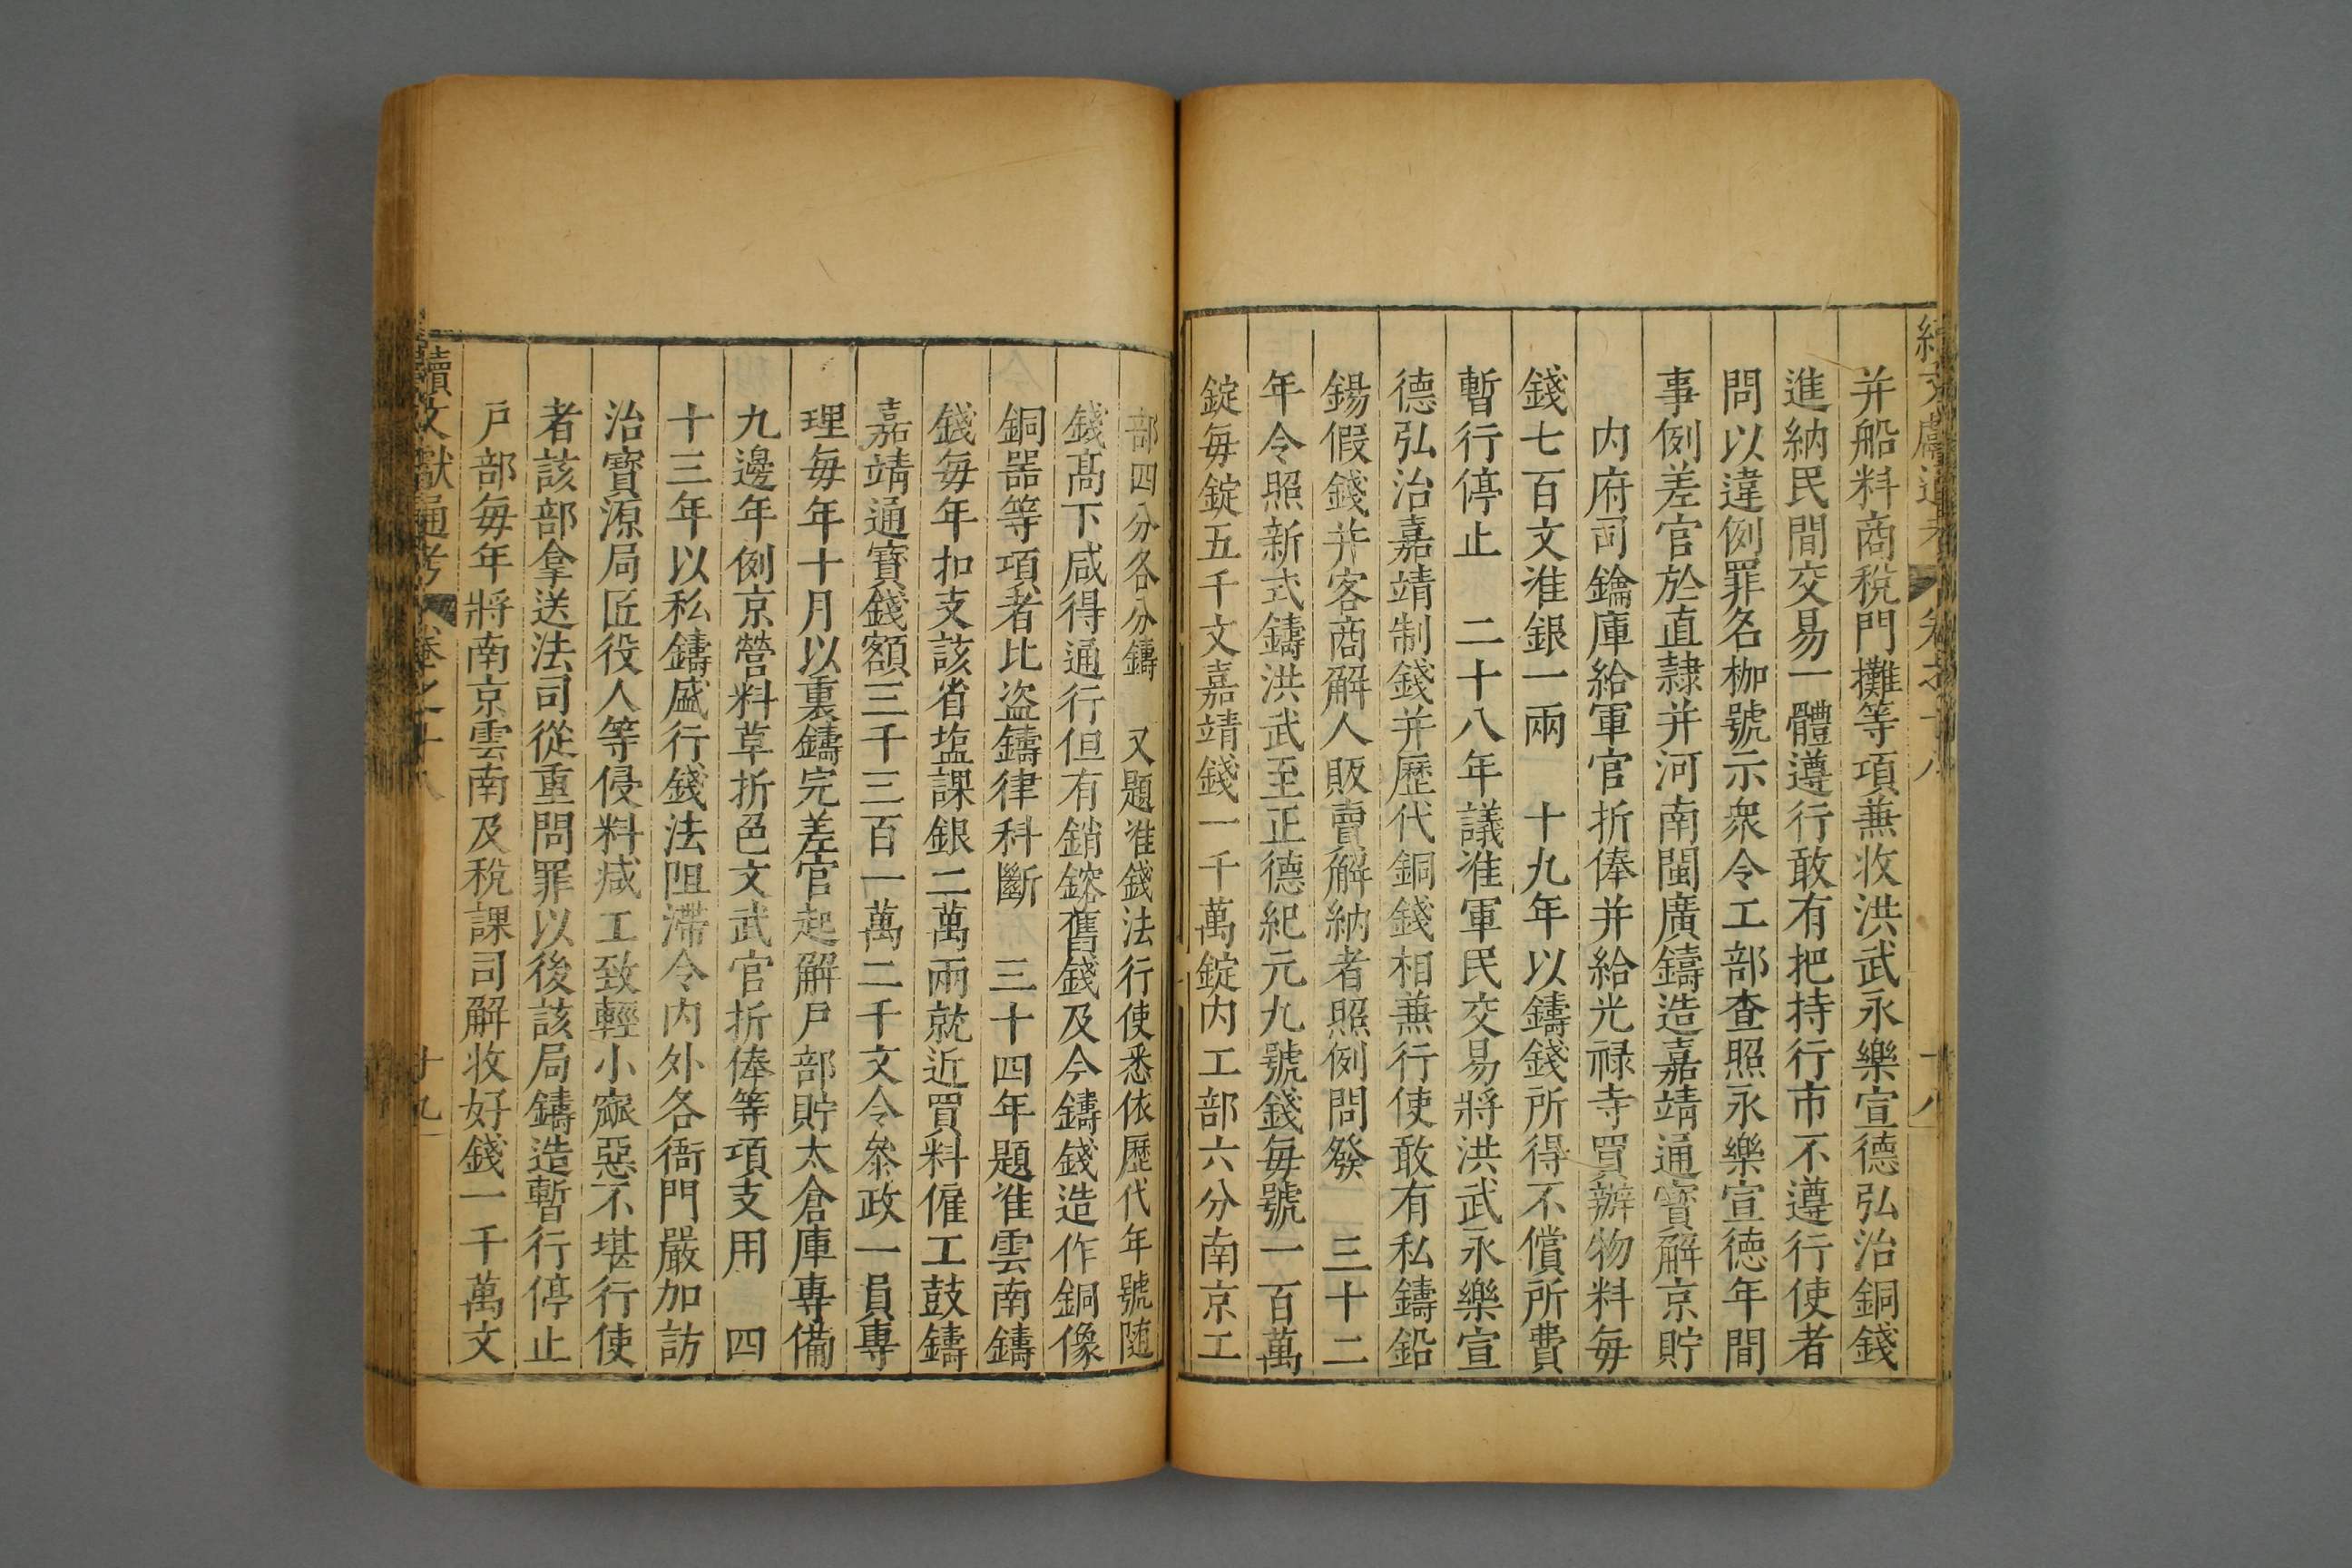 續文獻通考 卷之十八 十八
并船料商稅門攤等項兼收洪武永樂宣德弘治銅錢
進納民間交易一體遵行敢有把持行市不遵行使者
問以違例罪名枷號示衆令工部查照永樂宣德年間
事例差官於直隷并河南閩廣鑄造嘉靖通寶解京貯
内府司鑰庫給軍官折俸并給光禄寺買辦物料每
錢七百文准銀一兩 十九年以鑄錢所得不償所費
暫行停止 二十八年議准軍民交易將洪武永樂宣
德弘治嘉靖制錢并歷代銅錢相兼行使敢有私鑄鉛
錫假錢并客商解人販賣解納者照例問發 三十二
年令照新式鑄洪武至正德紀元九號錢每號一百萬
錠每錠五千文嘉靖錢一千萬錠内工部六分南京工
部四分各分鑄 又題准錢法行使悉依歷代年號随
錢髙下咸得通行但有銷鎔舊錢及今鑄錢造作銅像
銅噐等項者比盗鑄律科斷 三十四年題准雲南鑄
錢每年扣支該省塩課銀二萬兩就近買料僱工鼓鑄
嘉靖通寳錢額三千三百一萬二千文令叅政一員專
理每年十月以裏鑄完差官起解戸部貯太倉庫專備
九邊年例京營料草折色文武官折俸等項支用 四
十三年以私鑄盛行錢法阻滯令内外各衙門嚴加訪
治寶源局匠役人等侵料减工致輕小窳惡不堪行使
者該部拿送法司從重問罪以後該局鑄造暫行停止
戸部每年將南京雲南及稅課司解收好錢一千萬文
續文獻通考 卷之十八 十九